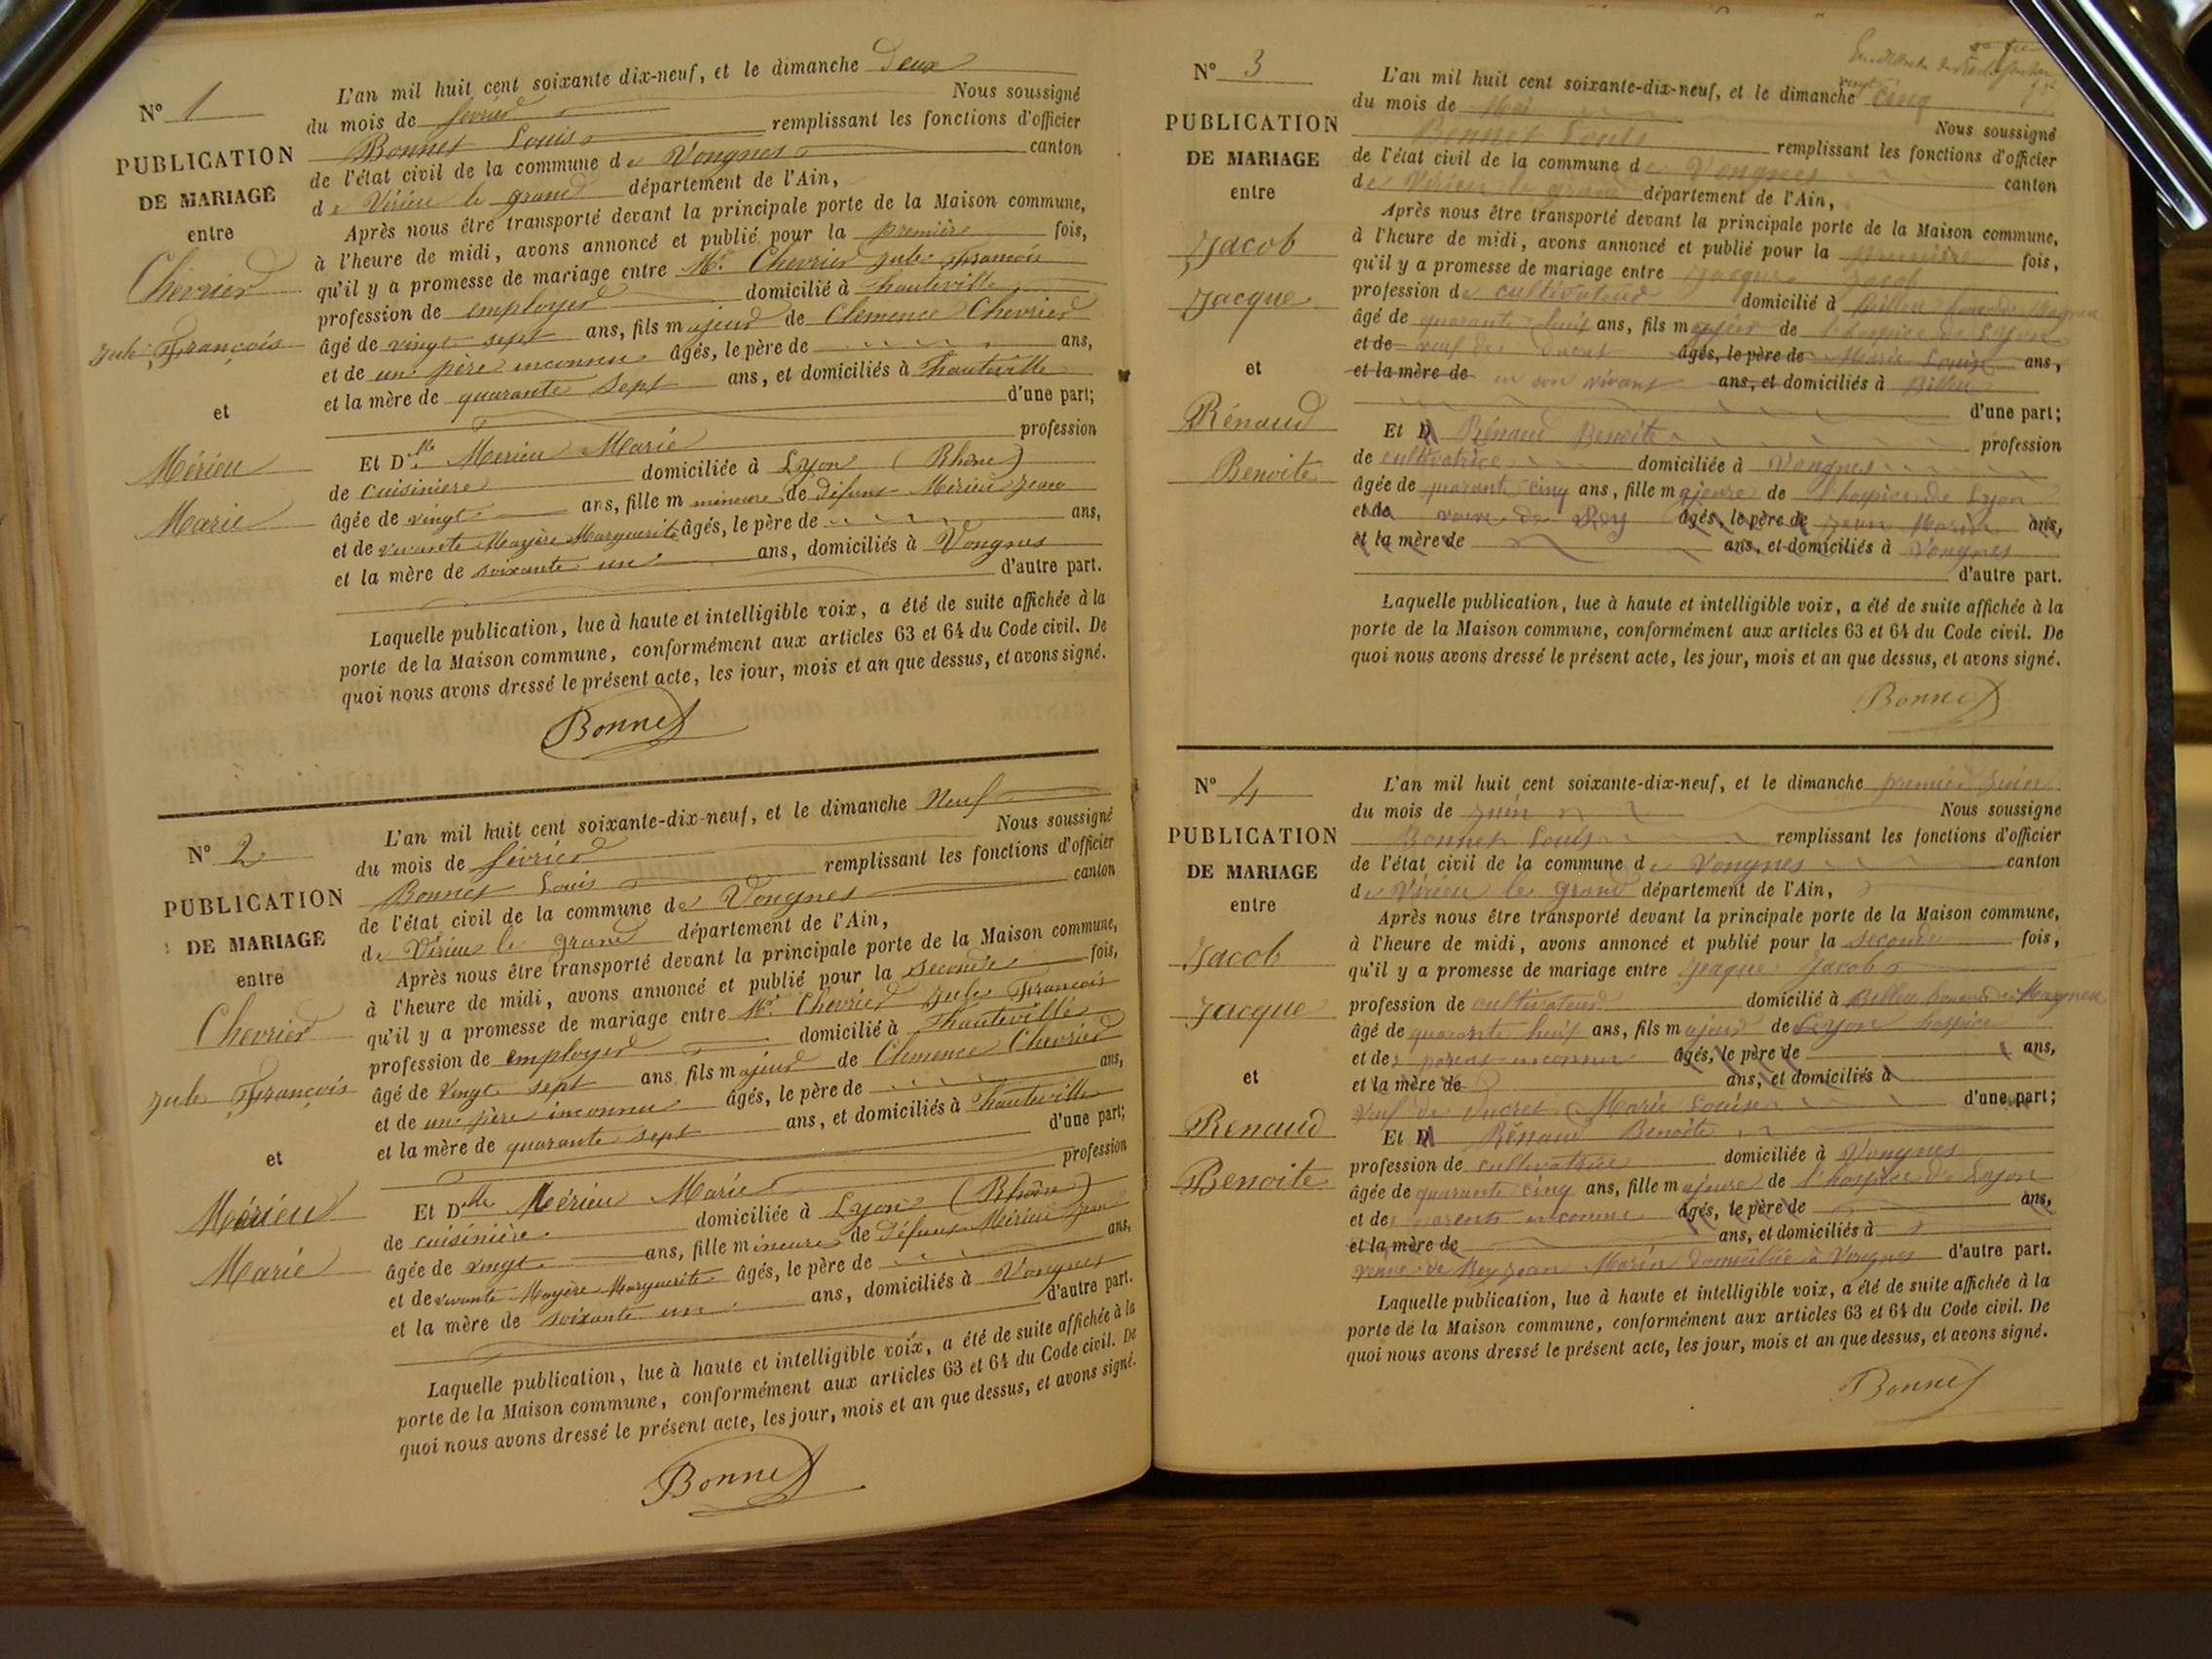 N° 1
PUBLICATION
DE MARIAGE
entre
Chevrier
Jule François
et
Mérieu
Marie
L'an mil huit cent soixante dix-neuf, et le dimanche Deux
du mois de fevrier Nous soussigné
Bonnet Louis remplissant les fonctions d'officier
de l'état civil de la commune de Vongnes canton
de Virieu le grand département de l'Ain,
Après nous être transporté devant la principale porte de la Maison commune,
à l'heure de midi, avons annoncé et publié pour la première fois,
qu'il y a promesse de mariage entre Mr. Chevrier Jule François
profession de employer domicilié à hauteville
âgé de vingt sept ans, fils majeur de Clemence Chevrier
et de un père inconnu âgés, le père de ans,
et la mère de quarante sept ans, et domiciliés à hauteville
d'une part;
Et Dlle Merieu Marie profession
de cuisiniere domiciliée à Lyon (Rhône)
âgée de vingt ans, fille m mineure de défunt Mérieu Jean
et de vivante Mayère Marguerite âgés, le père de ans,
et la mère de soixante un ans, domiciliés à Vongnes
d'autre part.
Laquelle publication, lue à haute et intelligible voix, a été de suite affichée à la
porte de la Maison commune, conformément aux articles 63 et 64 du Code civil. De
quoi nous avons dressé le présent acte, les jour, mois et an que dessus, et avons signé.
Bonnet
N° 2
PUBLICATION
DE MARIAGE
entre
Chevrier
Jule François
et
Mérieu
Marie
L'an mil huit cent soixante-dix-neuf, et le dimanche Neuf
du mois de fevrier Nous soussigné
Bonnet Louis remplissant les fonctions d'officier
de l'état civil de la commune de Vongnes canton
de Virieu le grand département de l'Ain,
Après nous être transporté devant la principale porte de la Maison commune,
à l'heure de midi, avons annoncé et publié pour la seconde fois,
qu'il y a promesse de mariage entre Mr. Chevrier Jule François
profession de employer domicilié à hauteville
âgé de vingt sept ans, fils majeur de Clemence Chevrier
et de un père inconnu âgés, le père de ans,
et la mère de quarante sept ans, et domiciliés à hauteville
d'une part;
Et Dlle Mérieu Marie profession
de cuisinière domiciliée à Lyon (Rhône)
âgée de vingt ans, fille mineure de défunt Mérieu Jean
et de vivante Mayère Marguerite âgés, le père de ans,
et la mère de soixante un ans, domiciliés à Vongnes
d'autre part.
Laquelle publication, lue à haute et intelligible voix, a été de suite affichée à la
porte de la Maison commune, conformément aux articles 63 et 64 du Code civil. De
quoi nous avons dressé le présent acte, les jour, mois et an que dessus, et avons signé.
Bonnet
N° 3
PUBLICATION
DE MARIAGE
entre
Jacob
Jacque
et
Rénaud
Benoite
L'an mil huit cent soixante-dix-neuf, et le dimanche vingt cinq
du mois de Mai Nous soussigné
Bonnet Louis remplissant les fonctions d'officier
de l'état civil de la commune de Vongnes canton
de Virieu le grand département de l'Ain,
Après nous être transporté devant la principale porte de la Maison commune,
à l'heure de midi, avons annoncé et publié pour la première fois,
qu'il y a promesse de mariage entre Jacque Jacob
profession de cultivateur domicilié à Billeu
âgé de quarante huit ans, fils majeur de l'hospice de Lyon
et de veuf de Ducret âgés, le père de Marie Louise ans,
et la mère de en son vivant ans, et domiciliés à Billeu
d'une part;
Et D Rénaud Benoite profession
de cultivatrice domiciliée à Vongnes
âgée de quarante cinq ans, fille majeure de l'hospice de Lyon
et de veuve de Rey âgés, le père de Jean Marie ans,
et la mère de ans, et domiciliés à Vongnes
d'autre part.
Laquelle publication, lue à haute et intelligible voix, a été de suite affichée à la
porte de la Maison commune, conformément aux articles 63 et 64 du Code civil. De
quoi nous avons dressé le présent acte, les jour, mois et an que dessus, et avons signé.
Bonnet
N° 4
PUBLICATION
DE MARIAGE
entre
Jacob
Jacque
et
Renaud
Benoite
L'an mil huit cent soixante-dix-neuf, et le dimanche premier Juin
du mois de Juin Nous soussigné
Bonnet Louis remplissant les fonctions d'officier
de l'état civil de la commune de Vongnes canton
de Virieu le grand département de l'Ain,
Après nous être transporté devant la principale porte de la Maison commune,
à l'heure de midi, avons annoncé et publié pour la seconde fois,
qu'il y a promesse de mariage entre Jeaque Jacob
profession de cultivateur domicilié à Billeu
âgé de quarante huit ans, fils majeur de Lyon hospice
et de parent inconnu âgés, le père de ans,
et la mère de ans, et domiciliés à
veuf de Ducret Marie Louise d'une part;
Et D Rénaud Benoite
profession de cultivatrice domiciliée à Vongnes
âgée de quarante cinq ans, fille majeure de l'hospice de Lyon
et de parents inconnu âgés, le père de ans,
et la mère de ans, et domiciliés à
veuve de Rey Jean Marie domiciliée à Vongnes d'autre part.
Laquelle publication, lue à haute et intelligible voix, a été de suite affichée à la
porte de la Maison commune, conformément aux articles 63 et 64 du Code civil. De
quoi nous avons dressé le présent acte, les jour, mois et an que dessus, et avons signé.
Bonnet